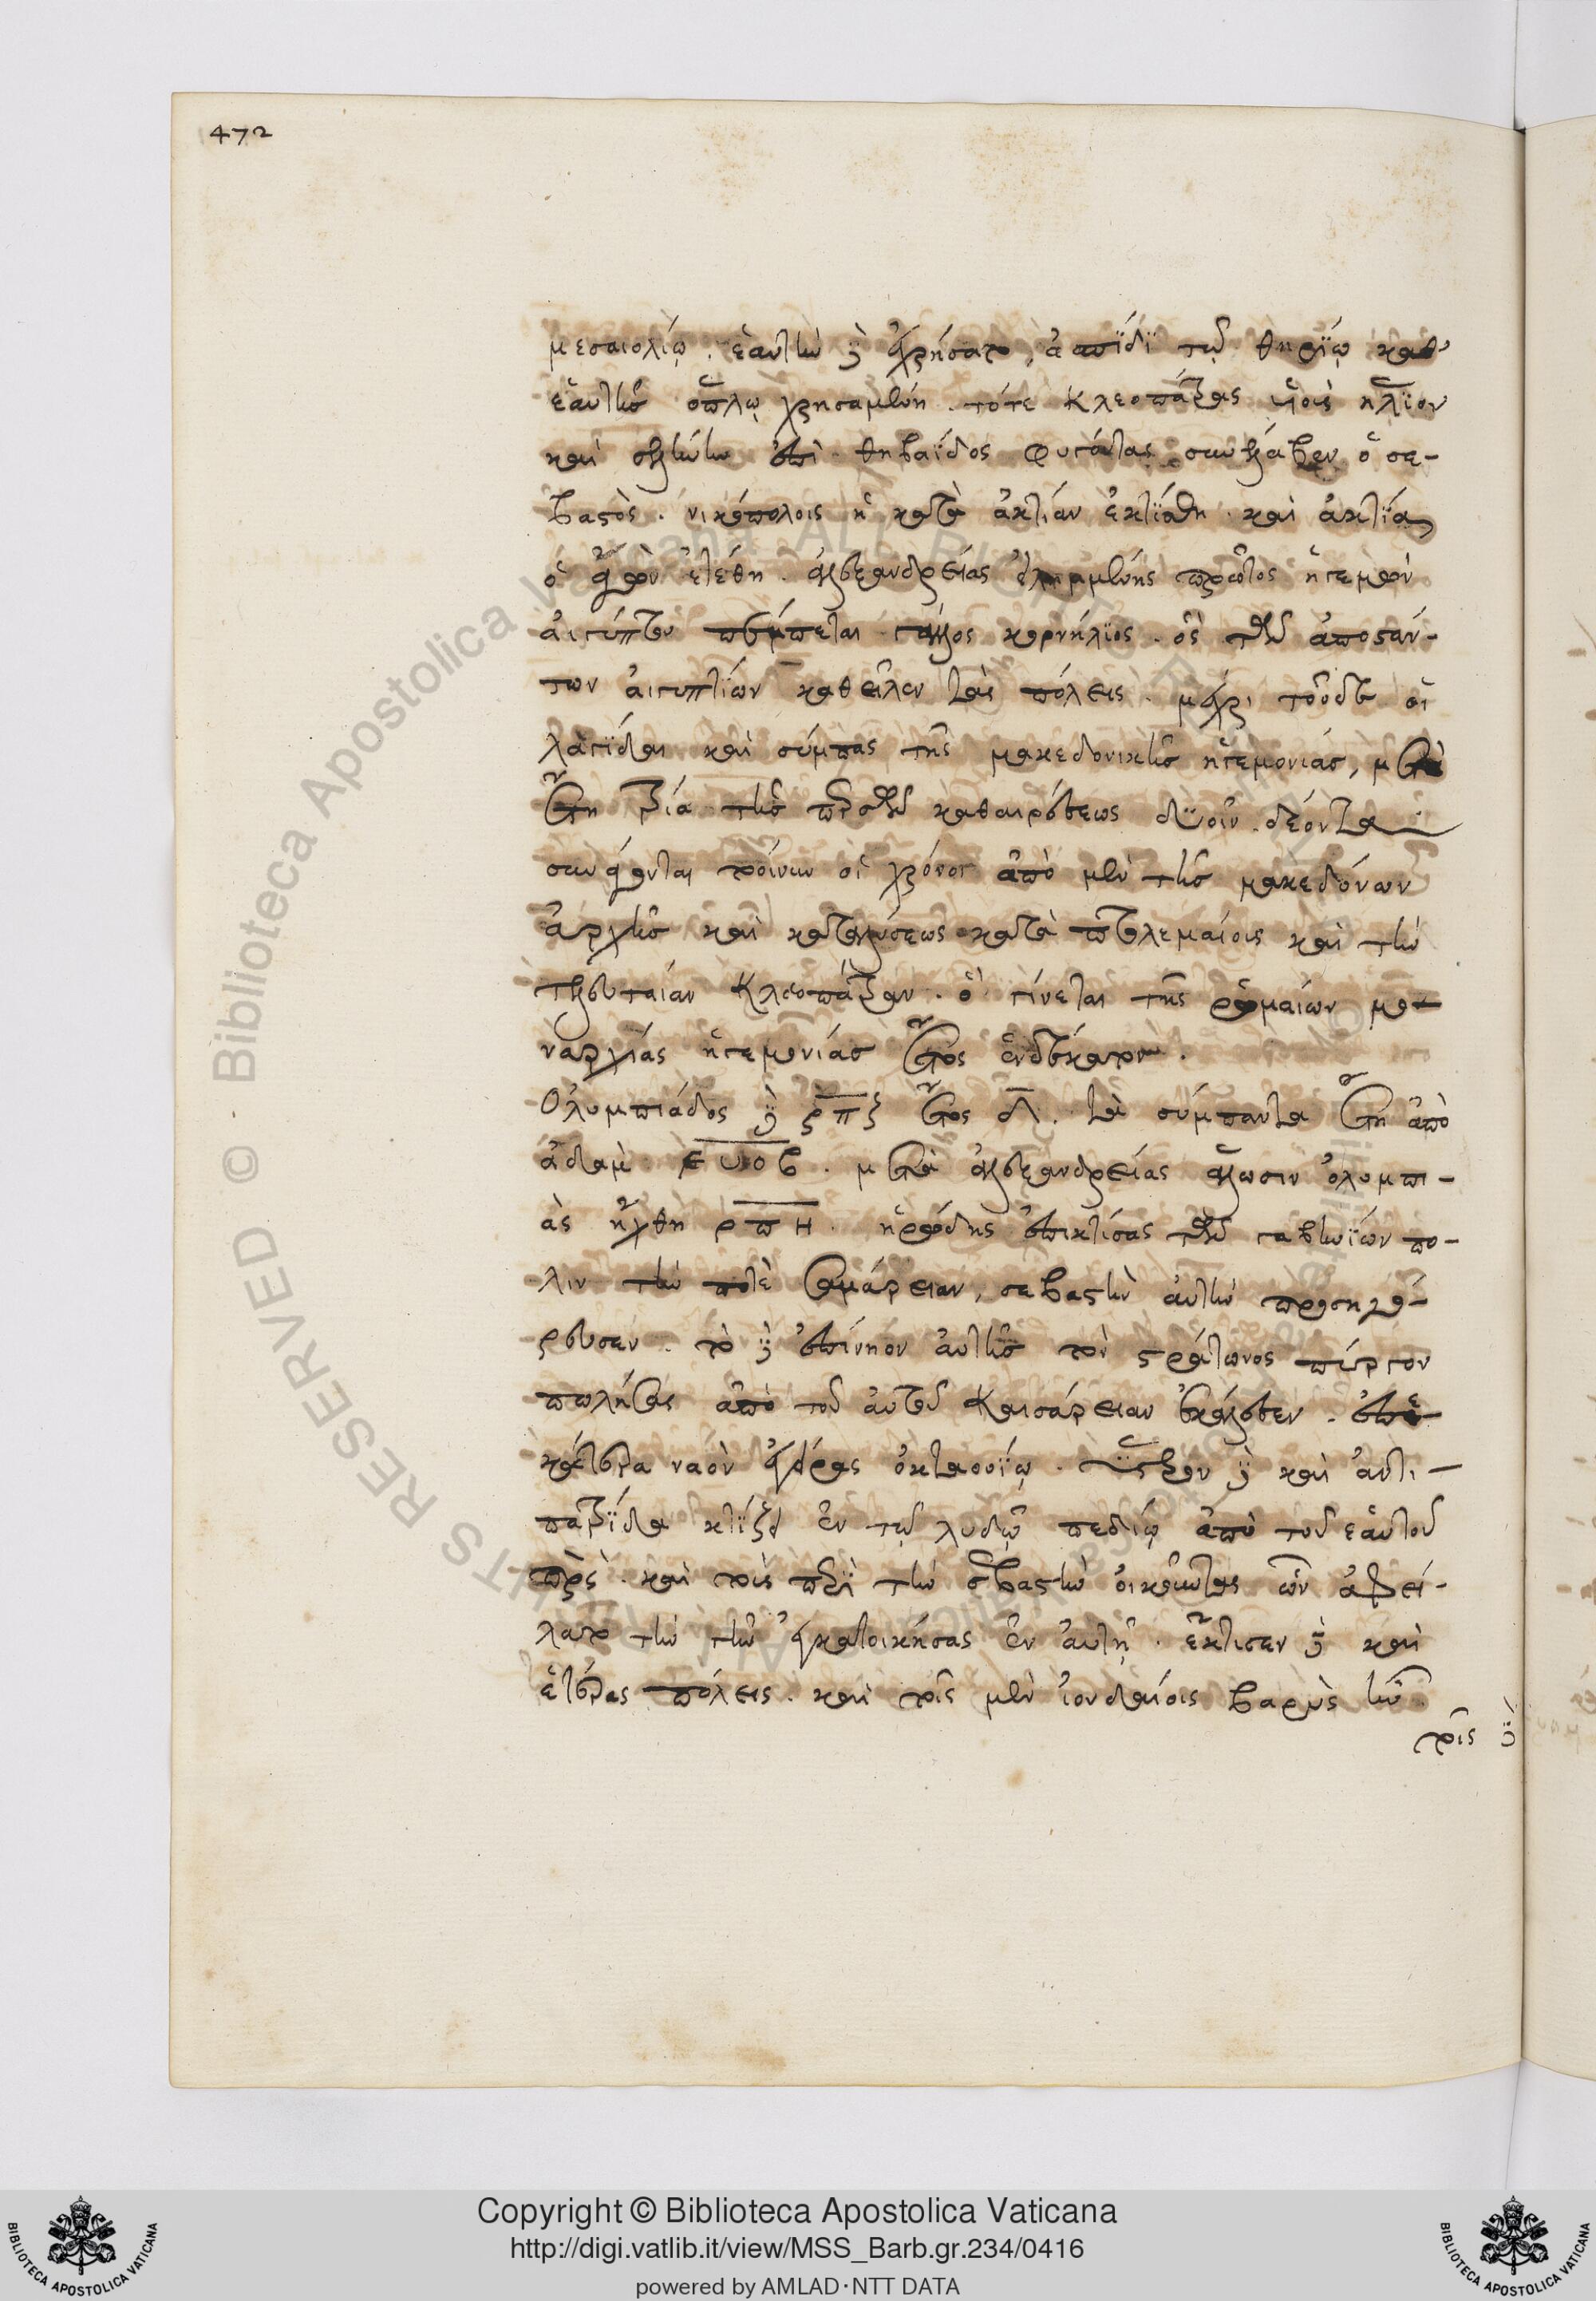 472
μεσαιολίῳ. ἑαυτὴν δὲ ἐχρήσατο, ἀσπίδϊ τῷ θηρίῳ καθ'
ἑαυτῆς ὅπλῳ χρησαμένη. τότε Κλεοπάτρας υἱοὺς ἥλϊον
καὶ σελήνην ἐπὶ θηβαΐδος φυγόντας συνέλαβεν ὁ σε-
βαστὸς. νικόπολις ἡ κατὰ ἀκτίαν ἐκτίσθη. καὶ ἀκτία
ὁ ἀγὼν ἐτέθη. ἀλεξανδρείας εἰλημμένης πρῶτος ἡγεμὼν
αἰγύπτου πέμπεται γάλλος κορνήλιος. ὃς τῶν ἀποσταν-
των αἰγυπτίων καθεῖλεν τὰς πόλεις. μέχρι τοῦδε οἱ
λαγίδαι καὶ σύμπας τῆς μακεδονικῆς ἡγεμονίας, μετὰ
ἔτη τρία τῆς περσῶν καθαιρέσεως δυοῖν δέοντα
συνάγονται τοίνυν οἱ χρόνοι ἀπὸ μὲν τῆς μακεδόνων
ἀρχῆς καὶ καταλύσεως κατὰ πτολεμαίοις καὶ τὴν
τελευταίαν Κλεοπάτραν. ὃ γίνεται τῆς ῥωμαίων μο-
ναρχίας ἡγεμονίας ἔτος ἑνδέκατον.
Ὀλυμπιάδος δὲ ρπζ ἔτος δ. τὰ σύμπαντα ἔτη ἀπὸ
ἀδαμ ευοβ. μετὰ ἀλεξανδρείας ἅλωσιν ὀλυμπι-
ὰς ἤχθη ρπη. ἡρώδης ἐπικτίσας τῶν γαβινίων πό-
λιν τήν ποτε σαμάρειαν, σεβαστὴν αὐτὴν προσηγό-
ρευσεν. τὸ δὲ ἐπίνειον αὐτῆς τὸν στράτωνος πύργον
πωλήσας ἀπὸ τοῦ αὐτοῦ Καισάρειαν ἐκάλεσεν. ἐπ' ἑ-
κάτερα ναὸν ἐγείρας ὀκταουΐῳ. ὕστερον δὲ καὶ ἀντι-
πατρίδα κτίζει ἐν τῷ λυδῷ πεδίῳ ἀπὸ τοῦ ἑαυτοῦ
πρς. καὶ τοὺς περὶ τὴν σεβαστὴν οἰκοῦντας ὧν ἀφεί-
λατο τὴν γῆν ἐγκατοικήσας ἐν αὐτῇ. ἔκτισεν δὲ καὶ
ἑτέρας πόλεις. καὶ τοῖς μὲν ἰουδαίοις βαρὺς ἦν.
τοῖς δὲ
Copyright © Biblioteca Apostolica Vaticana
http://digi.vatlib.it/view/MSS_Barb.gr.234/0416
powered by AMLAD·NTT DATA